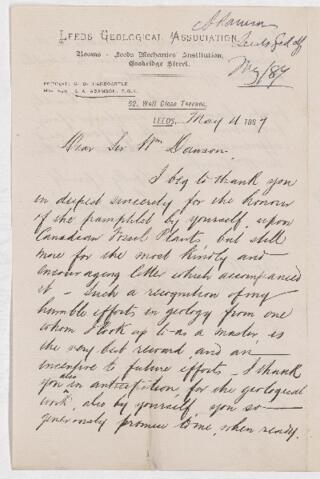 Adamson
Leeds Geol Ass
May/87
LEEDS GEOLOGICAL ASSOCIATION
Rooms - Leeds Mechanics' Institution,
Cookridge Street.
PRESIDENT
HON. SEC. S. A. ADAMSON, F.G.S.
52, Well Close Terrace,
LEEDS, May 11 1887
Dear Sir Wm Dawson.
I beg to thank you
in deepest sincerity for the honour
of the pamphlet by yourself upon
Canadian Fossil Plants, but still
more for the most kindly and
encouraging letter which accompanied
it - Such a recognition of my
humble efforts in geology from one
whom I look up to as a master, is
the very best reward and an
incentive to future efforts - I thank
you also in anticipation for the geological
work, also by yourself, you so
generously promise to me, when ready.